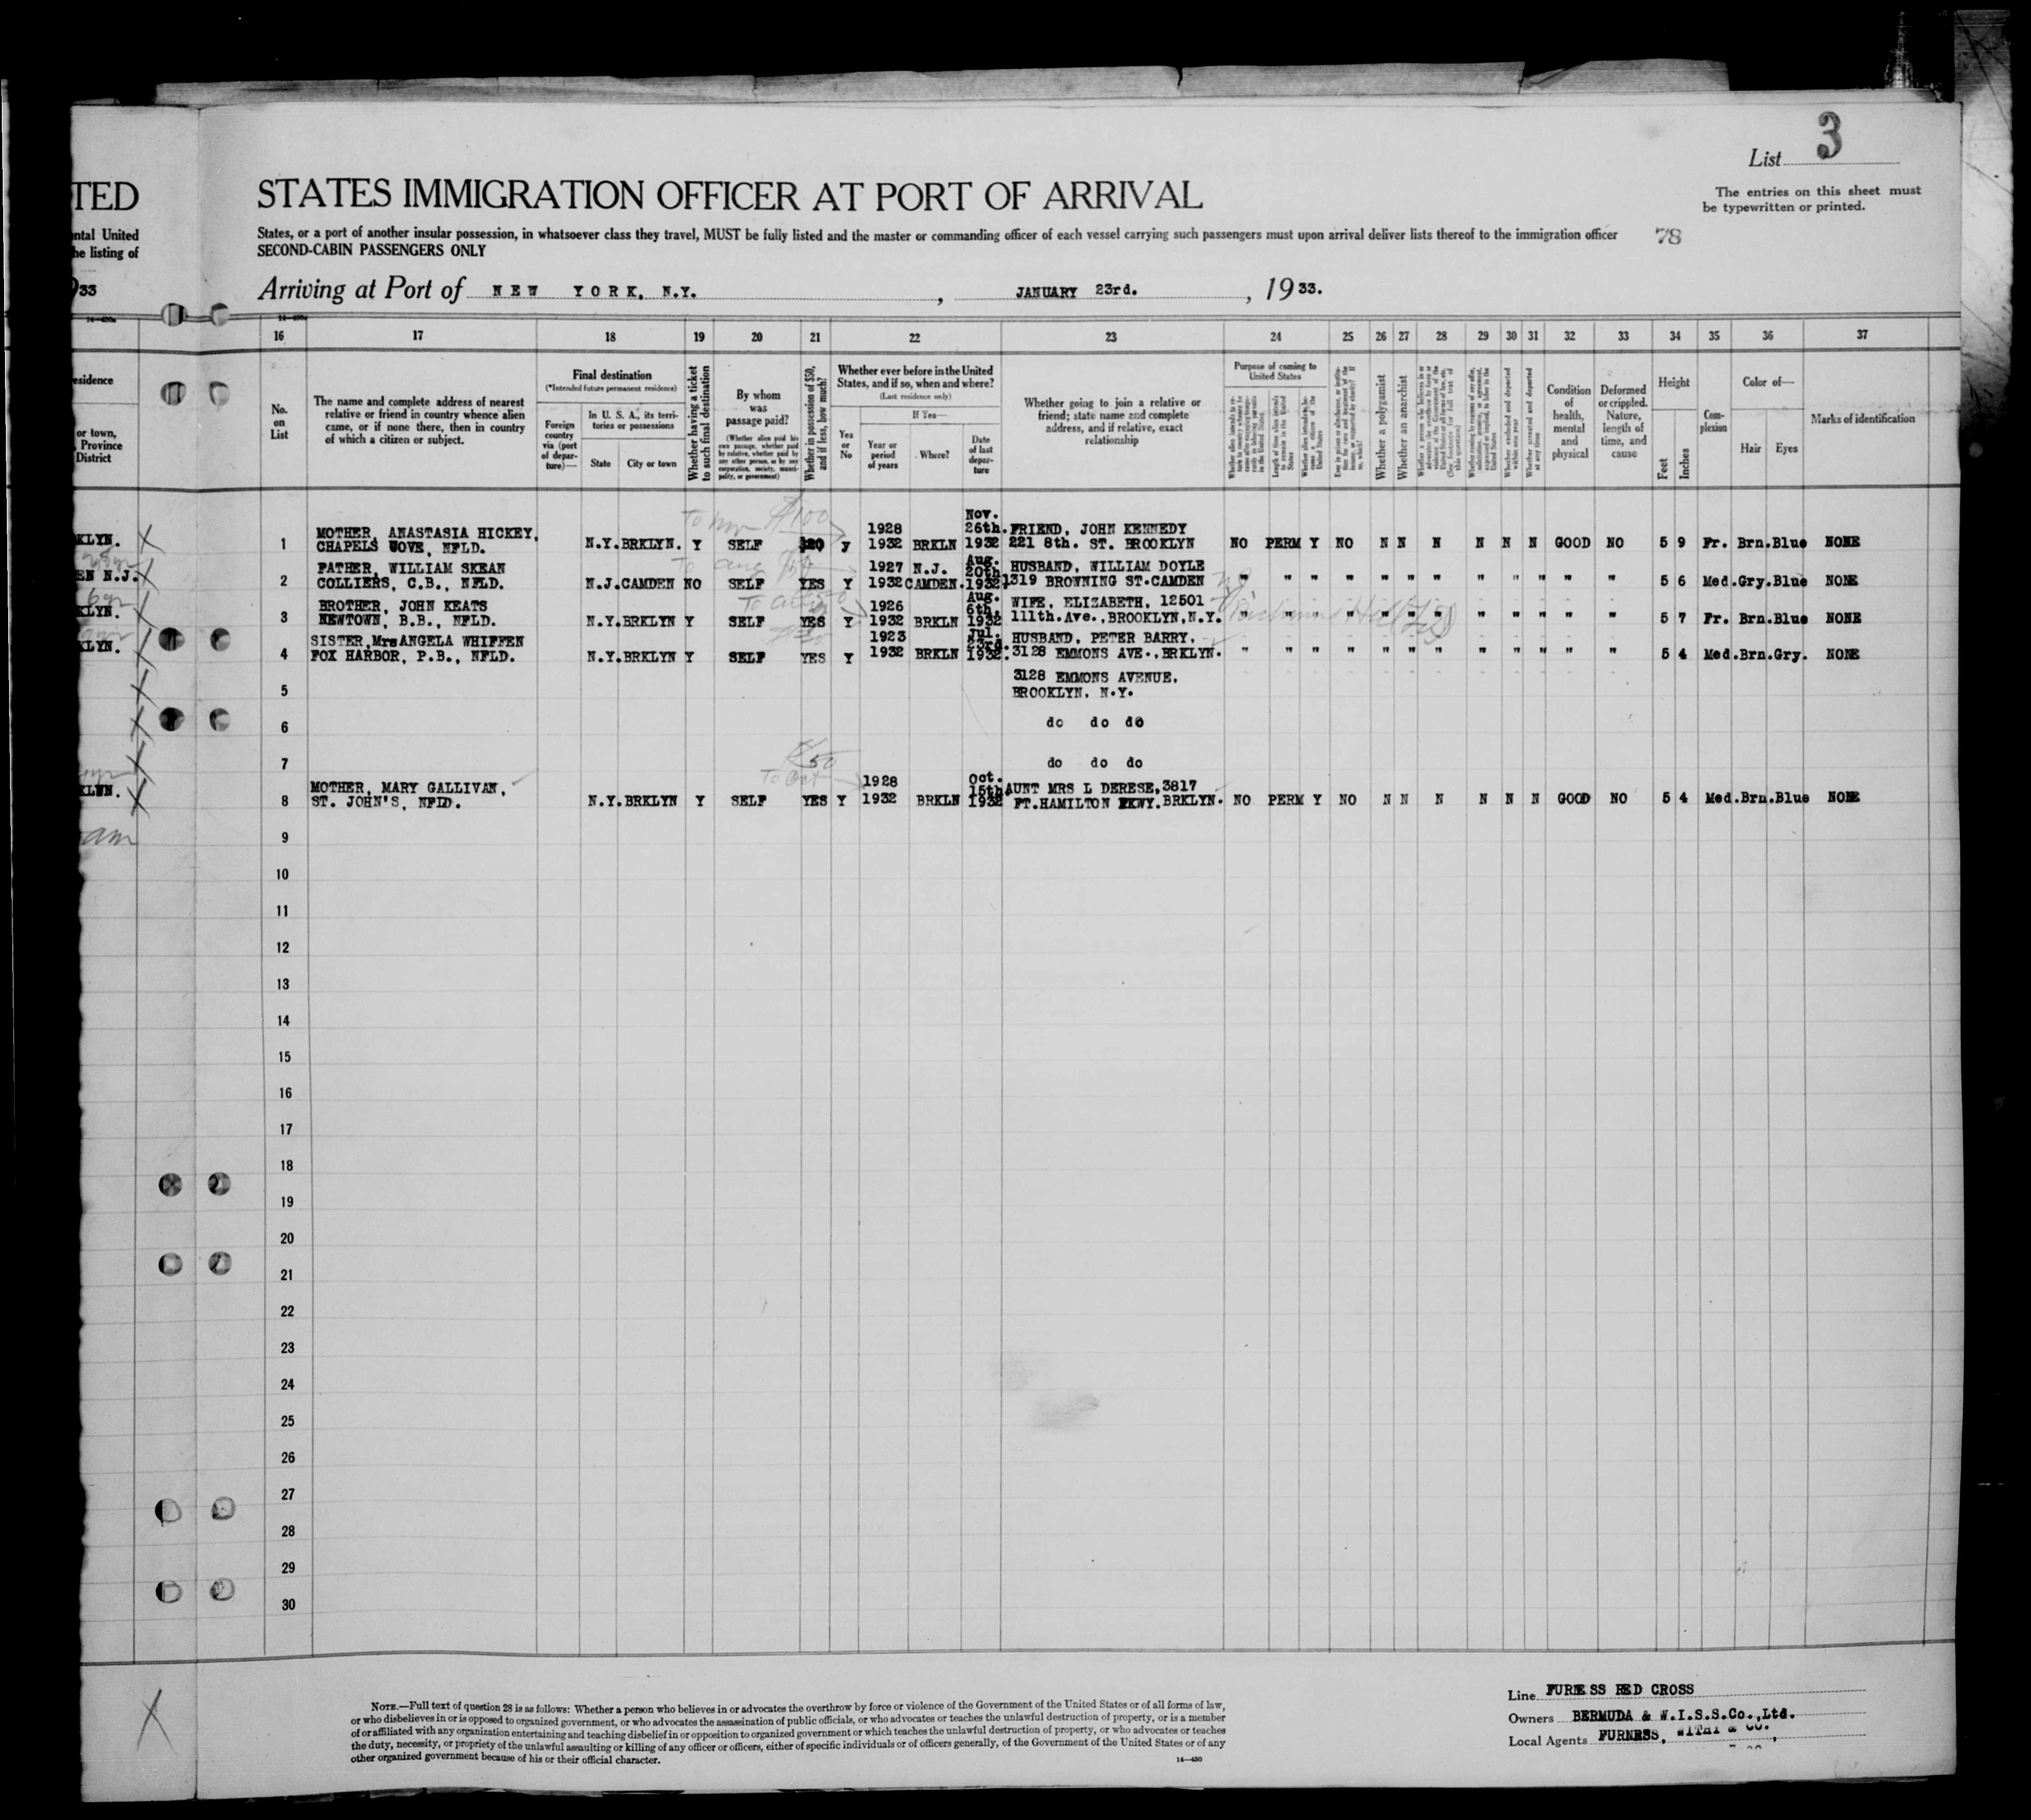 List 3
The entries on this sheet must
be typewritten or printed.
TED
STATES IMMIGRATION OFFICER AT PORT OF ARRIVAL
ntal United
he listing of
States, or a port of another insular possession, in whatsoever class they travel, MUST be fully listed and the master or commanding officer of each vessel carrying such passengers must upon arrival deliver lists thereof to the immigration officer
78
SECOND-CABIN PASSENGERS ONLY
33
Arriving at Port of NEW YORK, N.Y., JANUARY 23rd., 1933.
16 17 18 19 20 21 22 23 24 25 26 27 28 29 30 31 32 33 34 35 36 37
esidence
or town,
Province
District
No.
on
List
The name and complete address of nearest
relative or friend in country whence alien
came, or if none there, then in country
of which a citizen or subject.
Final destination
(*Intended future permanent residence)
Foreign
country
via (port
of depar-
ture)—
In U. S. A., its terri-
tories or possessions
State City or town
Whether having a ticket
to such final destination
By whom
was
passage paid?
(Whether alien paid his
own passage, whether paid
by relative, whether paid by
any other person, or by any
corporation, society, munici-
pality, or government)
Whether in possession of $50,
and if less, how much?
Whether ever before in the United
States, and if so, when and where?
(Last residence only)
Yes
or
No
If Yes—
Year or
period
of years
Where?
Date
of last
depar-
ture
Whether going to join a relative or
friend; state name and complete
address, and if relative, exact
relationship
Purpose of coming to
United States
Whether a polygamist
Whether an anarchist
Whether arrested and deported
at any time
Condition
of
health,
mental
and
physical
Deformed
or crippled.
Nature,
length of
time, and
cause
Height
Feet Inches
Com-
plexion
Color of—
Hair Eyes
Marks of identification
KLYN.
$100
Nov.
MOTHER, ANASTASIA HICKEY, 1928 26th. FRIEND, JOHN KENNEDY
1 CHAPELS COVE, NFLD. N.Y. BRKLYN. Y SELF $20 Y 1932 BRKLN 1932 221 8th. ST. BROOKLYN NO PERM Y NO N N N N N N GOOD NO 5 9 Fr. Brn. Blue NONE
EN N.J.
FATHER, WILLIAM SKEAN 1927 N.J. Aug. 20th. HUSBAND, WILLIAM DOYLE
2 COLLIERS, C.B., NFLD. N.J. CAMDEN NO SELF YES Y 1932 CAMDEN. 1932 1319 BROWNING ST. CAMDEN " " " " " " " " " " " " 5 6 Med. Gry. Blue NONE
KLYN.
BROTHER, JOHN KEATS 1926 Aug. 6th. WIFE, ELIZABETH, 12501
3 NEWTOWN, B.B., NFLD. N.Y. BRKLYN Y SELF YES Y 1932 BRKLN 1932 111th. Ave., BROOKLYN, N.Y. " " " " " " " " " " " " 5 7 Fr. Brn. Blue NONE
KLYN.
SISTER, Mrs ANGELA WHIFFEN 1923 Jul. 23rd. HUSBAND, PETER BARRY,
4 FOX HARBOR, P.B., NFLD. N.Y. BRKLYN Y SELF YES Y 1932 BRKLN 1932. 3128 EMMONS AVE., BRKLYN. " " " " " " " " " " " " 5 4 Med. Brn. Gry. NONE
3128 EMMONS AVENUE,
5 BROOKLYN, N.Y.
6 do do do
7 do do do
50
To Oct
KLYN.
MOTHER, MARY GALLIVAN, 1928 Oct. 15th AUNT MRS L DERESE, 3817
8 ST. JOHN'S, NFLD. N.Y. BRKLYN Y SELF YES Y 1932 BRKLN 1932 FT. HAMILTON PKWY. BRKLYN. NO PERM Y NO N N N N N N GOOD NO 5 4 Med. Brn. Blue NONE
9
10
11
12
13
14
15
16
17
18
19
20
21
22
23
24
25
26
27
28
29
30
NOTE.—Full text of question 28 is as follows: Whether a person who believes in or advocates the overthrow by force or violence of the Government of the United States or of all forms of law,
or who disbelieves in or is opposed to organized government, or who advocates the assassination of public officials, or who advocates or teaches the unlawful destruction of property, or is a member
of or affiliated with any organization entertaining and teaching disbelief in or opposition to organized government or which teaches the unlawful destruction of property, or who advocates or teaches
the duty, necessity, or propriety of the unlawful assaulting or killing of any officer or officers, either of specific individuals or of officers generally, of the Government of the United States or of any
other organized government because of his or their official character.
14—430
Line FURNESS RED CROSS
Owners BERMUDA & W.I.S.S.Co.,Ltd.
Local Agents FURNESS, WITHY & CO.,